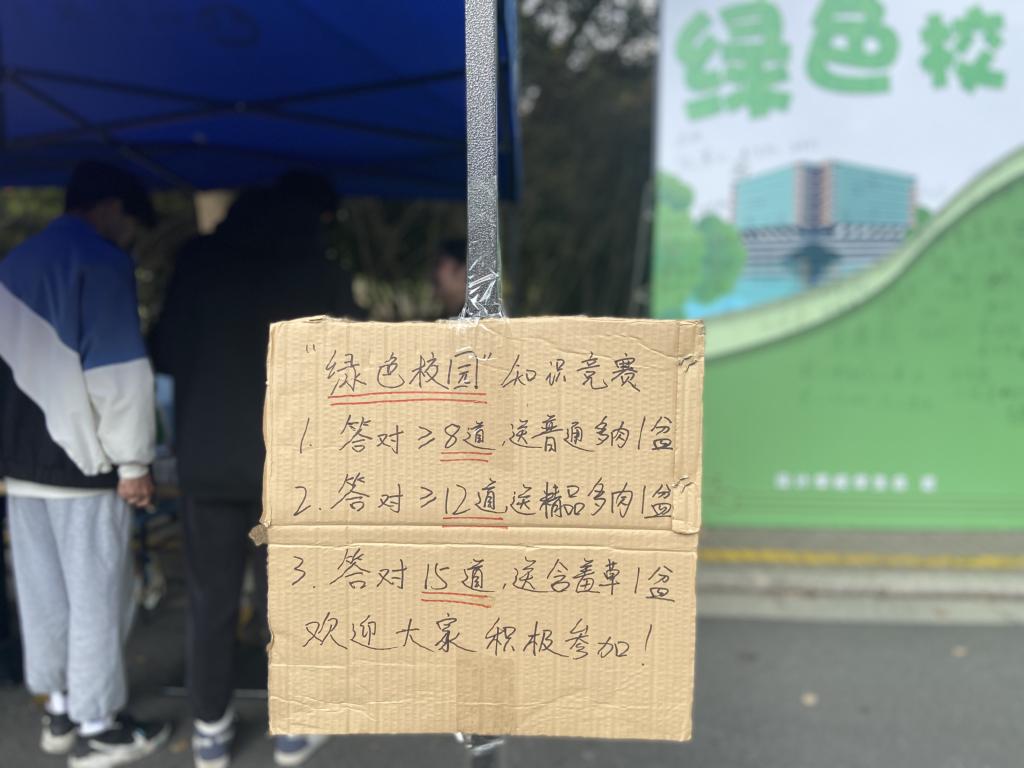 绿色校
"绿色校园"知识竞赛
1. 答对≥8道,送普通多肉1盆
2. 答对≥12道,送精品多肉1盆
3. 答对15道,送含羞草1盆
欢迎大家积极参加!